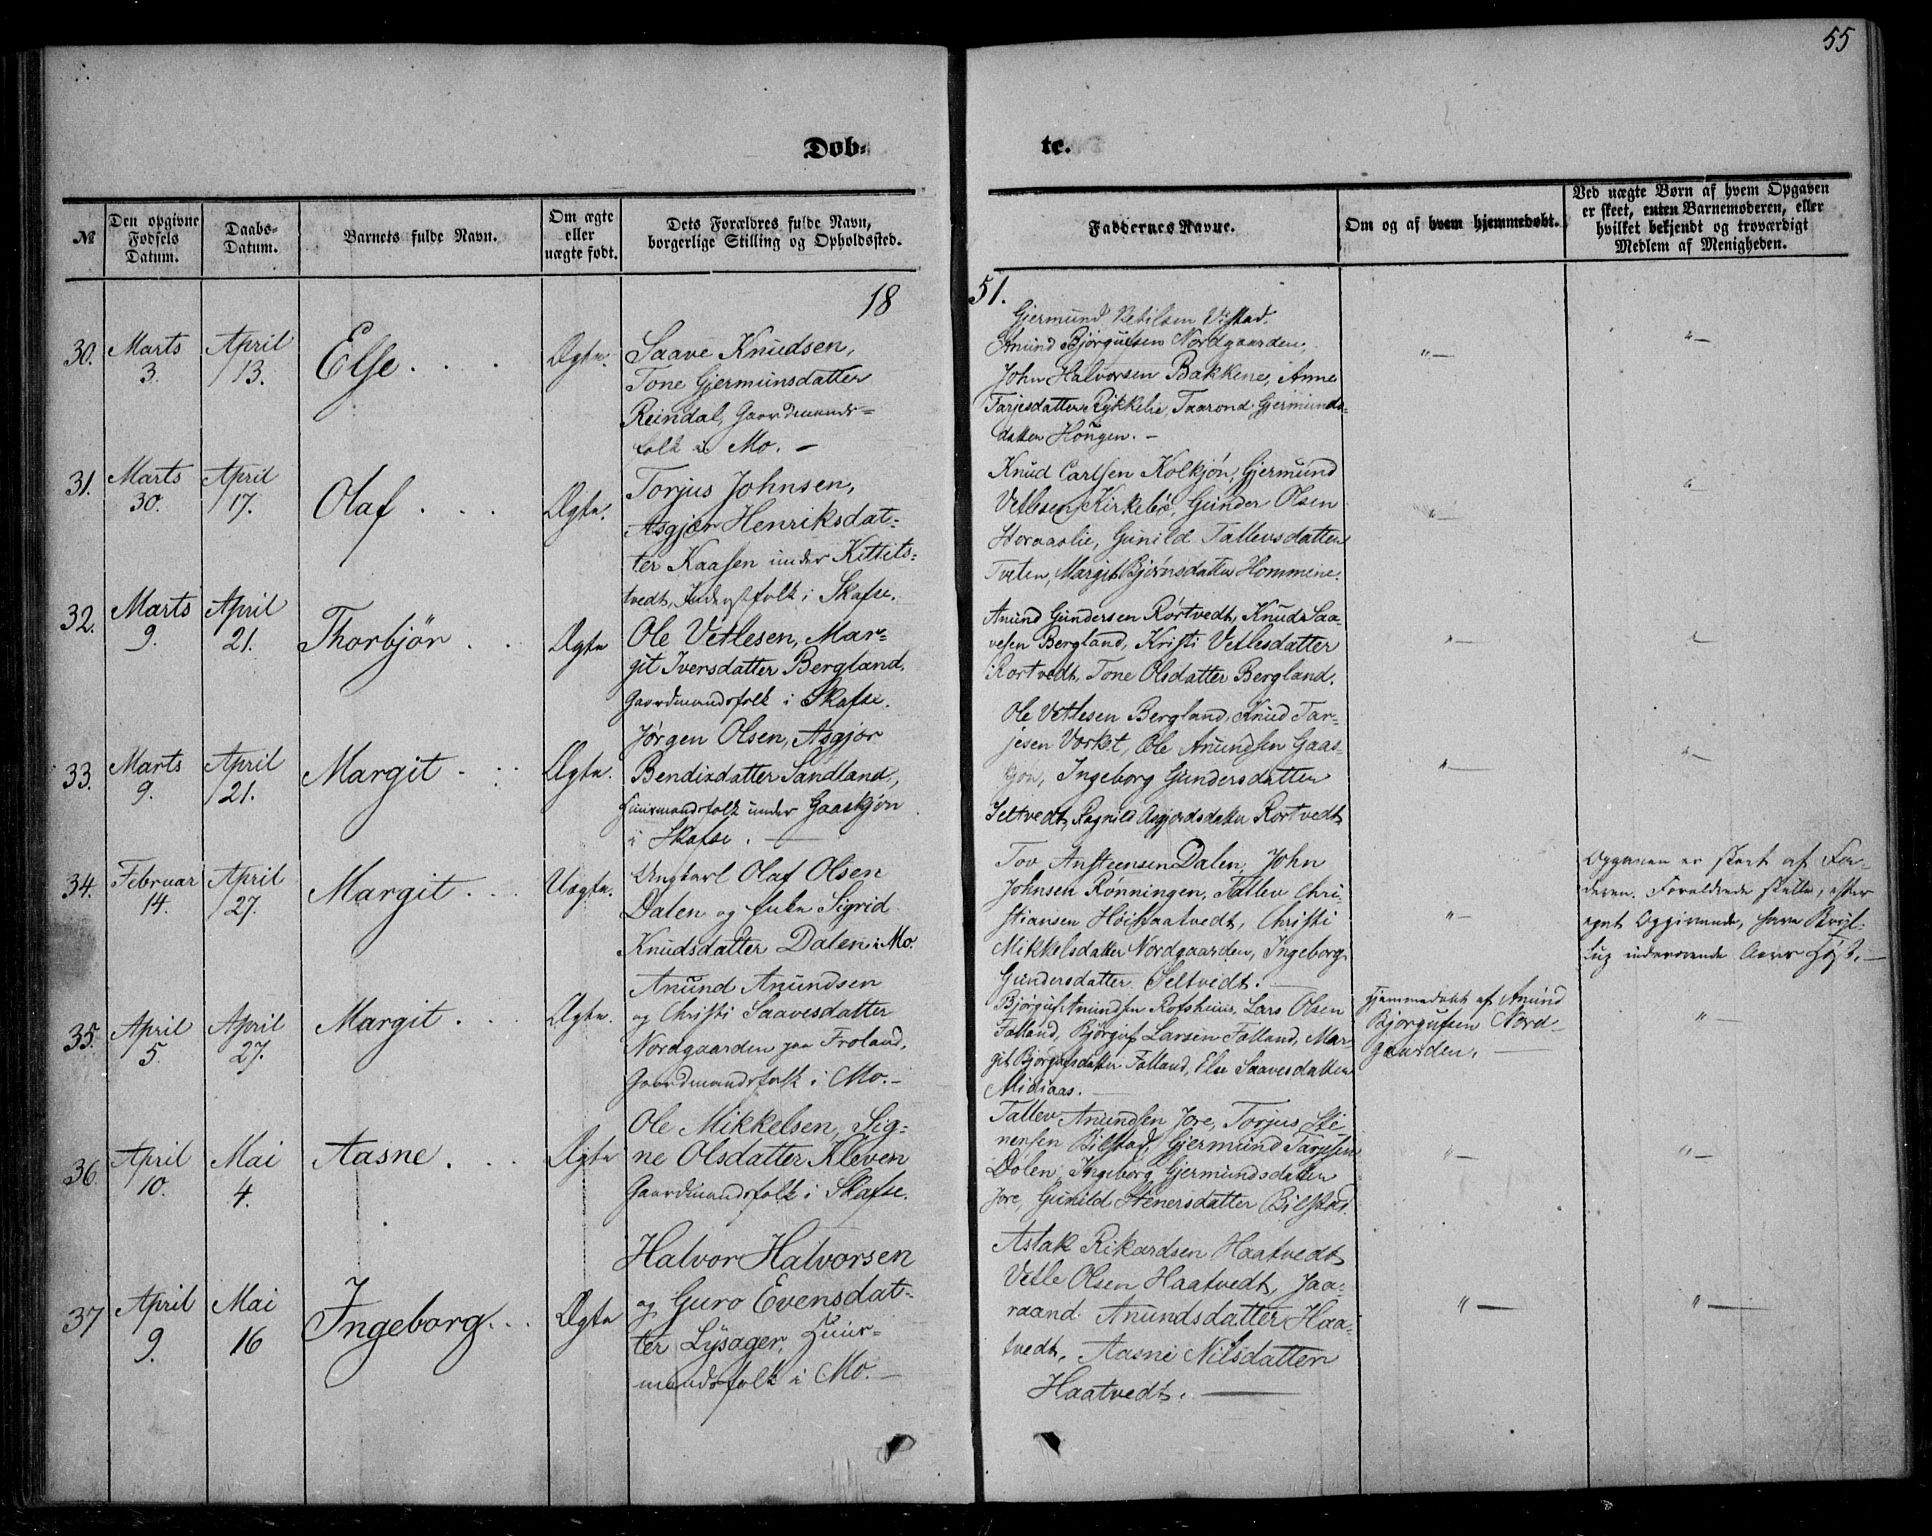 55
Dob-
te.
№
Den opgivne
Fødsels
Datum.
Daabs-
Datum.
Barnets fulde Navn.
Om ægte
eller
uægte født.
Dets Forældres fulde Navn,
borgerlige Stilling og Opholdssted.
Faddernes Navne.
Om og af hvem hjemmedøbt.
Ved uægte Børn af hvem Opgaven
er skeet, enten Barnemoderen, eller
hvilket bekjendt og troværdigt
Medlem af Menigheden.
18
51.
30.
Marts
3.
April
13.
Else
Ægte.
Saave Knudsen,
Tone Gjermunsdatter
Reindal, Gaardmands-
folk i Mo. —
Gjermund Ketilsen Vistad.
Anund Bjørgufsen Nordgaarden,
John Halvorsen Bakkene, Anne
Tarjesdatter Rykkelie, Taarond Gjermunds-
datter Hougen. —
31.
Marts
30.
April
17.
Olaf
Ægte.
Torjus Johnsen,
Asgjer Henriksdat-
ter Kaasen under Kittils-
tvedt, Inderstfolk i Skafse.
Knud Carlsen Kolkjøn, Gjermund
Vetlesen Kirkebø, Gunder Olsen
Storaaslie, Gunild Tallevsdatter
Tveten, Margit Bjørnsdatter Hommene.
32.
Marts
9.
April
21.
Thorbjör
Ægte
Ole Vetlesen, Mar-
git Iversdatter Bergland,
Gaardmandsfolk i Skafse.
Anund Gundersen Rörtvedt, Knud Saa-
vesen Bergland, Kristi Vetlesdatter
Rortvedt, Tone Olsdatter Bergland.
33.
Marts
9.
April
21.
Margit
Ægte.
Jørgen Olsen, Asgjør
Bendixdatter Sandland,
Huusmandsfolk under Gaaskjøn
i Skafse. —
Ole Vetlesen Bergland, Knud Tar-
jesen Vorket, Ole Anundsen Gaas-
gon, Ingeborg Gundersdatter
Seltvedt, Ragnild Asgjordsdatter Rortvedt
34.
Februar
14.
April
27.
Margit
Uægte.
Ungkarl Olaf Olsen
Dalen og Enke Sigrid
Knudsdatter Dalen i Mo.
Tov Ansteensen Dalen, John
Johnsen Rønningen, Tallev Chri-
stiansen Høishaatvedt, Christi
Mikkelsdatter Nordgaarden, Ingeborg
Gundersdatter Seltvedt. —
Opgaven er skeet af Fa-
deren. Forældrene skulle, efter
eget Opgivende, have Bryl-
lup indeværende Aars Høst. —
35.
April
5.
April
27.
Margit
Ægte.
Anund Anundsen
og Christi Saavesdatter
Nordgaarden paa Froland,
Gaardmandsfolk i Mo. —
Bjørguf Anundsen Rofshuus, Lars Olsen
Falland, Bjørguf Larsen Falland, Mar-
git Bjørgufsdatter Falland, Else Saavesdatter
Midiaas. —
Hjemmedøbt af Anund
Bjørgufsen Nord-
gaarden. —
36.
April
10.
Mai
4.
Aasne
Ægte
Ole Mikkelsen, Sig-
ne Olsdatter Kleven
Gaardmandsfolk i Skafse.
Tallev Anundsen Jore, Torjus Ste-
nersen Bilstad, Gjermund Tarjesen
Dølen, Ingeborg Gjermundsdatter
Jore, Gunild Stenersdatter Bilstad.
37
April
9.
Mai
16
Ingeborg
Ægte
Halvor Halvorsen
og Guro Evensdat-
ter Lysager, Huus-
mandsfolk i Mo. —
Aslak Rikardsen Haatvedt,
Vetle Olsen Haatvedt, Jaa-
raand Anundsdatter Haa-
tvedt, Aasne Nilsdatter
Haatvedt. —